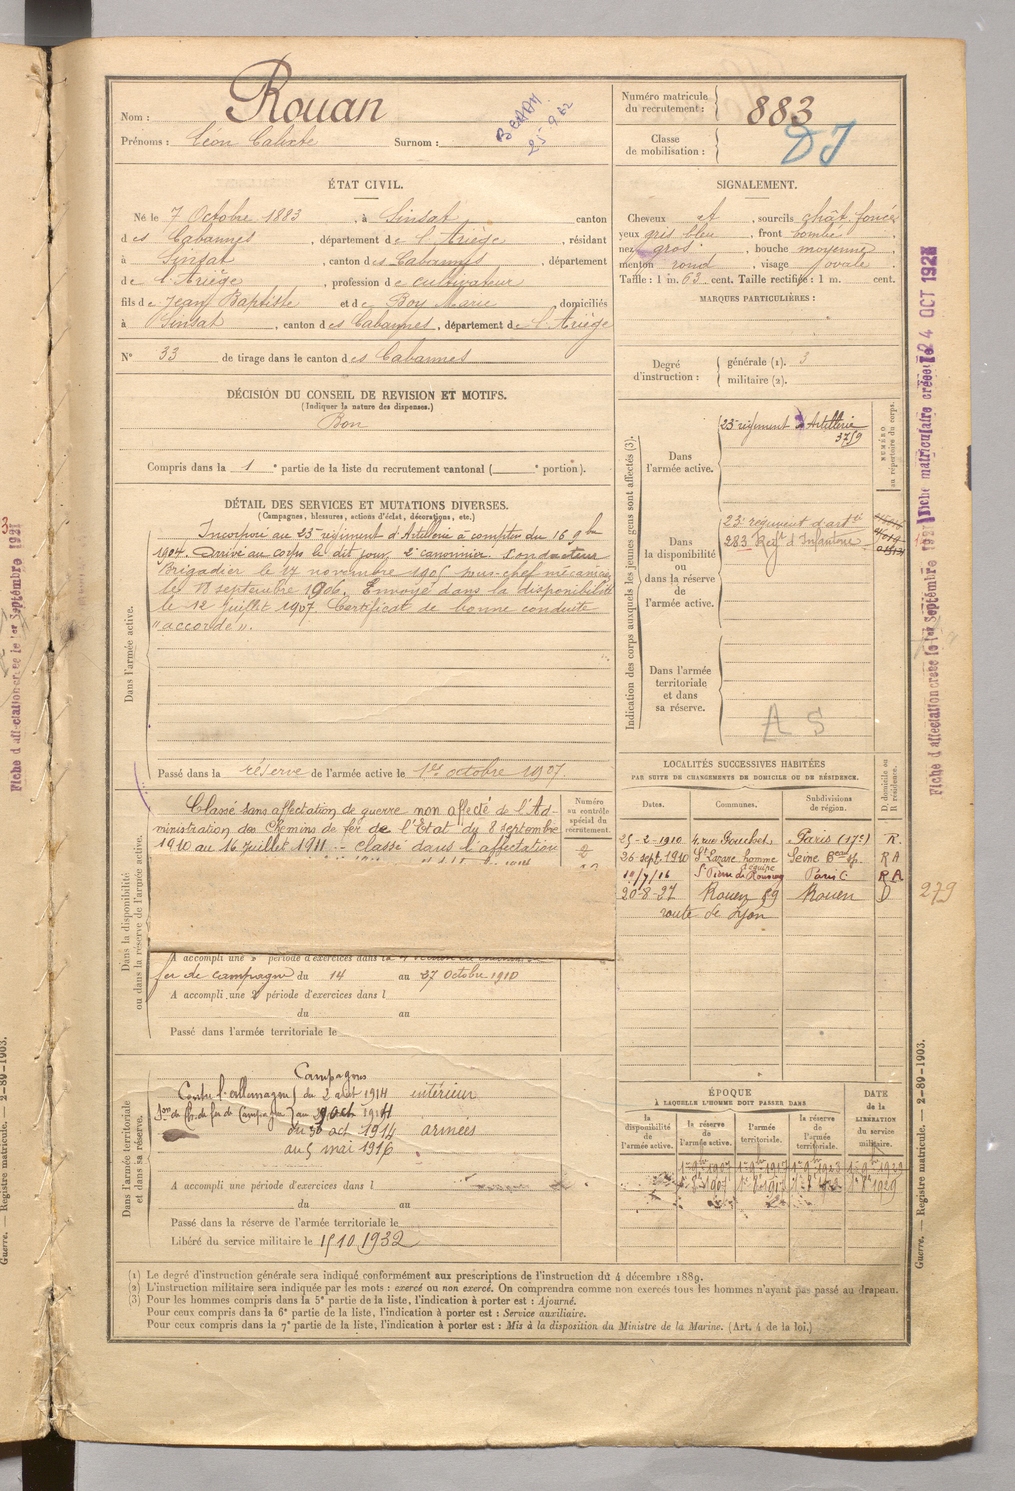 Nom : Rouan
Prénoms : Léon Calixte Surnom :
25 9.62
Numéro matricule du recrutement : 883
Classe de mobilisation :
ÉTAT CIVIL.
Né le 7 Octobre 1883, à Sinsat canton
des Cabannes, département de l'Ariège, résidant
à Sinsat, canton des Cabannes, département
de l'Ariège, profession de cultivateur
fils de Jean Baptiste et de Boy Marie, domiciliés
à Sinsat, canton des Cabannes, département de l'Ariège
N° 33 de tirage dans le canton des Cabannes
SIGNALEMENT.
Cheveux et, sourcils chât. foncé
yeux gris bleu, front bombé
nez gros, bouche moyenne
menton rond, visage ovale
Taille : 1 m. 63 cent. Taille rectifiée : 1 m. cent.
MARQUES PARTICULIÈRES :
Degré d'instruction : générale (1). 3
militaire (2).
DÉCISION DU CONSEIL DE REVISION ET MOTIFS.
(Indiquer la nature des dispenses.)
Bon
Compris dans la 1e partie de la liste du recrutement cantonal ( e portion).
DÉTAIL DES SERVICES ET MUTATIONS DIVERSES.
(Campagnes, blessures, actions d'éclat, décorations, etc.)
Dans l'armée active.
Incorporé au 23e régiment d'Artillerie à compter du 16 9bre
1904. Arrivé au corps le dit jour, 2e canonnier. Conducteur
Brigadier le 17 novembre 1905 sous-chef mécanicien
le 18 septembre 1906. Envoyé dans la disponibilité
le 12 Juillet 1907 Certificat de bonne conduite
"accordé".
Passé dans la réserve de l'armée active le 1er octobre 1907.
Indication des corps auxquels les jeunes gens sont affectés (3).
NUMÉRO au répertoire du corps.
Dans l'armée active.
23e régiment d'Artillerie
3759
Dans la disponibilité ou dans la réserve de l'armée active.
23e régiment d'artie
283 Regt d'Infanterie
Dans l'armée territoriale et dans sa réserve.
A S
Dans la disponibilité ou dans la réserve de l'armée active.
Numéro au contrôle spécial du recrutement.
Classé sans affectation de guerre non affecté de l'Ad-
ministration des Chemins de fer de l'Etat du 8 septembre
1910 au 16 Juillet 1911 - classé dans l'affectation
A accompli une période d'exercices dans la
fer de campagne du 14 au 27 Octobre 1910
A accompli une 2e période d'exercices dans l
du au
Passé dans l'armée territoriale le
LOCALITÉS SUCCESSIVES HABITÉES
PAR SUITE DE CHANGEMENTS DE DOMICILE OU DE RÉSIDENCE.
Dates. Communes. Subdivisions de région. D. domicile ou R. résidence.
25-2-1910 4, rue Gouchet Paris (17e) R.
26 sept. 1910 St Lazare homme d'équipe Seine R A
10/7/16 Paris C R A
20-8-27 Rouen 59 Rouen D
route de Lyon
279
Dans l'armée territoriale et dans sa réserve.
Campagnes
Contre l'allemagne du 2 août 1914 intérieur
au oct 1914
du oct 1914 armées
au 5 mai 1916
A accompli une période d'exercices dans l
du au
Passé dans la réserve de l'armée territoriale le
Libéré du service militaire le 15 10 1932
ÉPOQUE
À LAQUELLE L'HOMME DOIT PASSER DANS
la disponibilité de l'armée active. la réserve de l'armée active. l'armée territoriale. la réserve de l'armée territoriale.
DATE de la LIBÉRATION du service militaire.
(1) Le degré d'instruction générale sera indiqué conformément aux prescriptions de l'instruction du 4 décembre 1889.
(2) L'instruction militaire sera indiquée par les mots : exercé ou non exercé. On comprendra comme non exercés tous les hommes n'ayant pas passé au drapeau.
(3) Pour les hommes compris dans la 5e partie de la liste, l'indication à porter est : Ajourné.
Pour ceux compris dans la 6e partie de la liste, l'indication à porter est : Service auxiliaire.
Pour ceux compris dans la 7e partie de la liste, l'indication à porter est : Mis à la disposition du Ministre de la Marine. (Art. 4 de la loi.)
Guerre. — Registre matricule. — 2-89-1903.
Fiche d'affectation créée le 1er Septembre 1927
Fiche matriculaire créée le 24 OCT 192
Fiche d'affectation créée le 1er Septembre 1927
Guerre. — Registre matricule. — 2-89-1903.